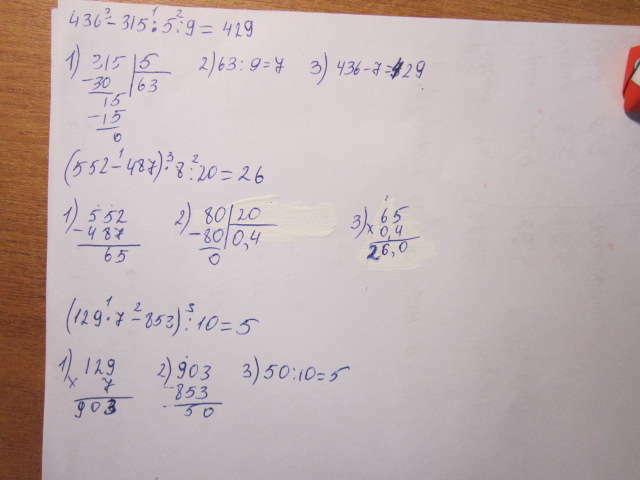 436 - 315 : 5 : 9 = 429
3 1 2
1) 315 | 5 2) 63 : 9 = 7 3) 436 - 7 = 429
- 30 | 63
15
- 15
0
(552 - 487) · 8 : 20 = 26
1 3 2
1) 552 2) 80 | 20 3) 65
- 487 - 80 | 0,4 × 0,4
65 0 26,0
(129 · 7 - 853) : 10 = 5
1 2 3
1) 129 2) 903 3) 50 : 10 = 5
× 7 - 853
903 50